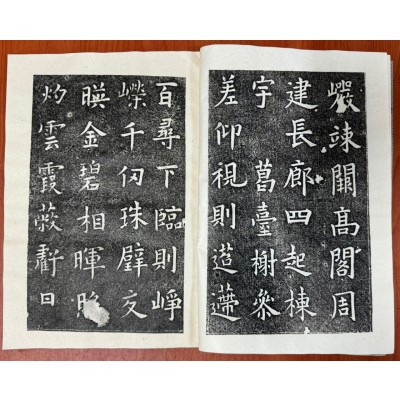 巗竦闕髙閣周
建長廊四起棟
宇葛臺榭叅
差仰視則迢遰
百尋下臨則崢
嶸千仞珠璧交
暎金碧相暉照
灼雲霞蔽虧日